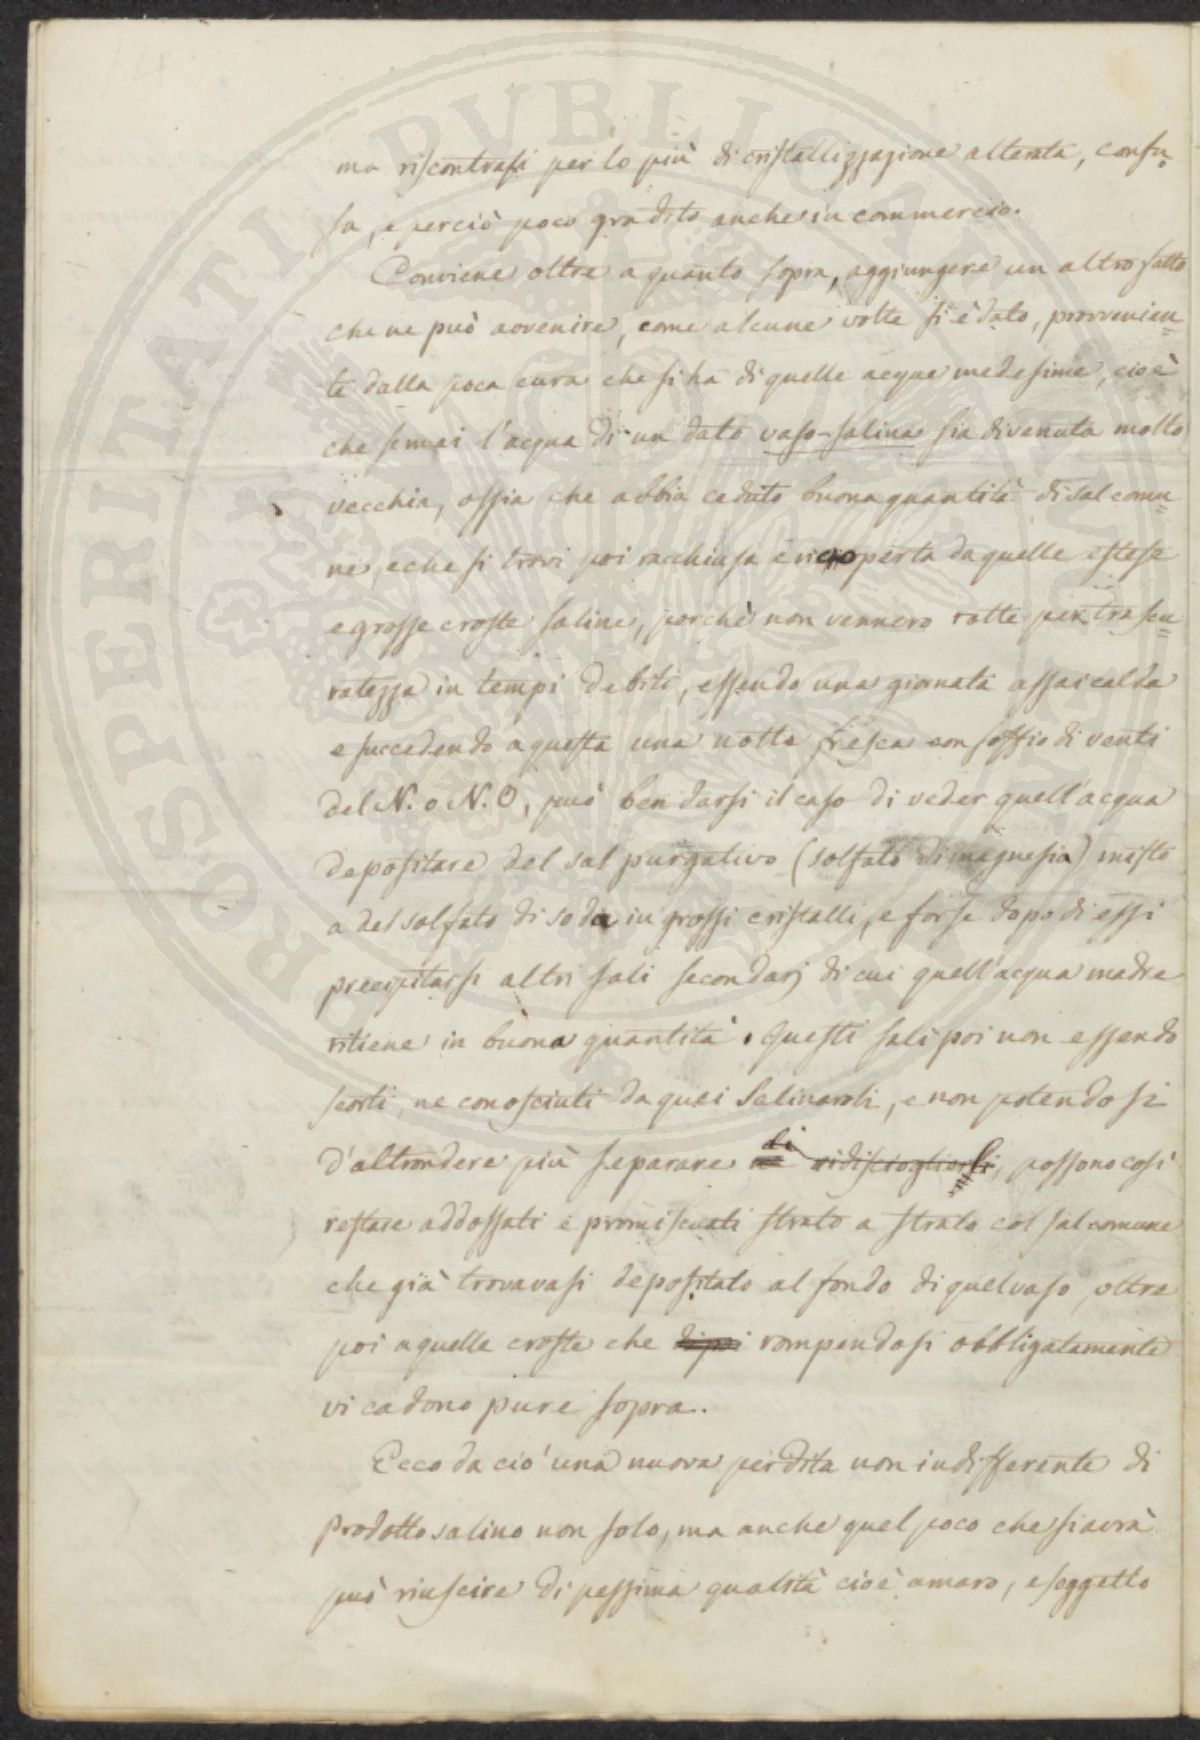 ma riscontrasi per lo più di cristallizzazione alterata, confu=
sa, e perciò poco gradito anche in commercio.
Conviene oltre a quanto sopra, aggiungere un altro fatto
che ne può avvenire, come alcune volte si è dato, provvenien=
te dalla poca cura che si ha di quelle acque medesime, cioè
che semai l'acqua di un dato vaso-salina sia divenuta molto
vecchia, ossia che abbia ceduto buona quantità di sal comu=
ne, e che si trovi poi racchiusa e ricoperta da quelle estese
e grosse croste saline, perchè non vennero rotte per trascu=
ratezza in tempi debiti, essendo una giornata assai calda
e succedendo a questa una notte fresca con soffio di venti
del N. o N.O, può ben darsi il caso di veder quell'acqua
depositare del sal purgativo (solfato di magnesia) misto
a del solfato di soda in grossi cristalli, e forse dopo di essi
precipitarsi altri sali secondarj di cui quell'acqua madre
ritiene in buona quantità. Questi sali poi non essendo
scorti, ne conosciuti da quei Salinaroli, e non potendosi
d'altrondere più separare di ridisciogliorli, possono così
restare addossati e promiscuati strato a strato col sal comune
che già trovavasi depositato al fondo di quel vaso, oltre
poi a quelle croste che rompendosi obbligatamente
vi cadono pure sopra.
Ecco da ciò una nuova perdita non indifferente di
prodotto salino non solo, ma anche quel poco che si avrà
può riuscire di pessima qualità cioè amaro, e soggetto
PROSPERITATI PUBLICAE